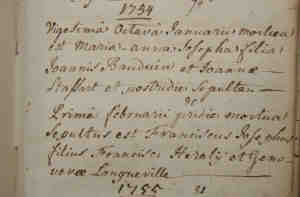 1754
Vigesima Octava Januarii mortua
est Maria anna Josepha filia
Joannis Bauduin et Joannae
Staffart et postridie Sepulta
Prima februarii pridie mortuus
Sepultus est Franciscus Josephus
filius Francisci et Geno-
vevae Longueville
1755